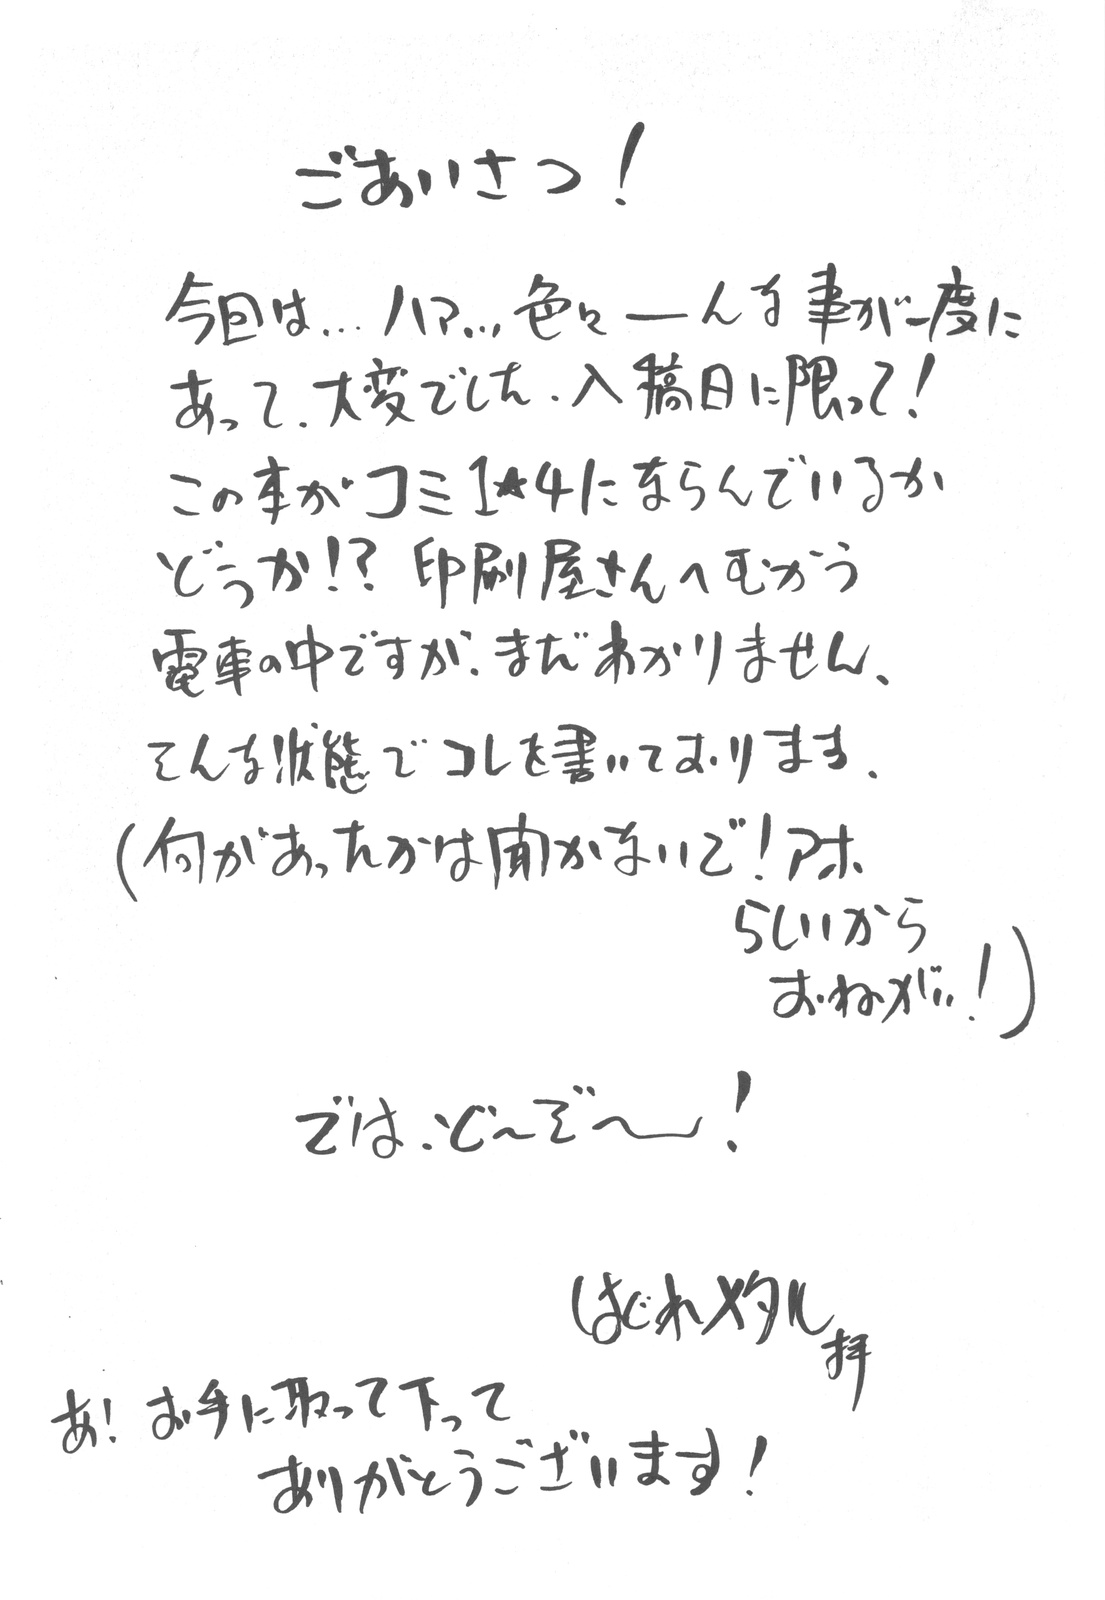 ごあいさつ!
今回は…ハァ…色々──んな事が一度に
あって、大変でした、入稿日に限って!
この本がコミ1☆4にならんでいるか
どうか!?印刷屋さんへむかう
電車の中ですが、まだわかりません、
そんな状態でコレを書いております、
(何があったかは聞かないで!アホ
らしいから
おねがい!)
では、ど〜ぞ〜!
はぐれメタル拝
あ!お手に取って下って
ありがとうございます!